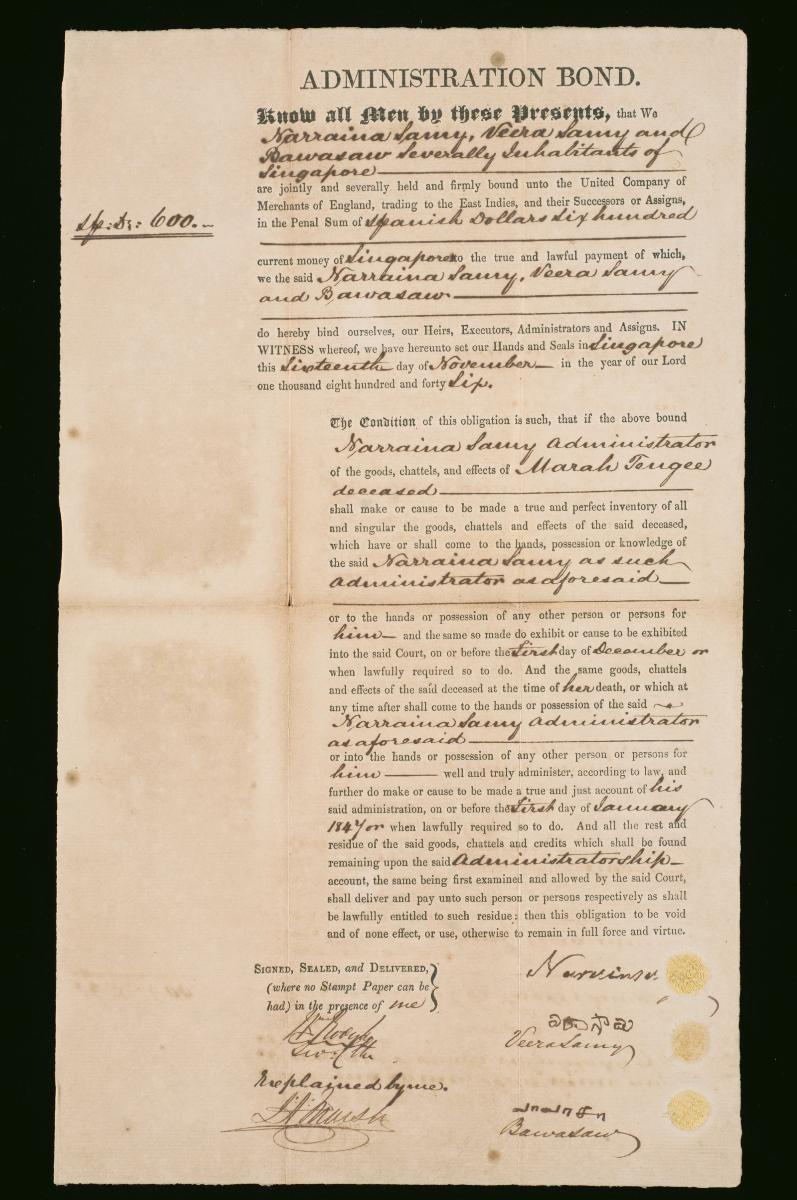 ADMINISTRATION BOND.
Know all Men by these Presents, that We
Narraina Samy, Veera Samy and
Bawasaw Severally Inhabitants of
Singapore
are jointly and severally held and firmly bound unto the United Company of
Merchants of England, trading to the East Indies, and their Successors or Assigns,
Sp: Drs: 600.
in the Penal Sum of Spanish Dollars Six hundred
current money of Singapore to the true and lawful payment of which,
we the said Narraina Samy, Veera Samy
and Bawasaw
do hereby bind ourselves, our Heirs, Executors, Administrators and Assigns. IN
WITNESS whereof, we have hereunto set our Hands and Seals in Singapore
this Sixteenth day of November in the year of our Lord
one thousand eight hundred and forty Six.
The Condition of this obligation is such, that if the above bound
Narraina Samy Administrator
of the goods, chattels, and effects of Marah Tengee
deceased
shall make or cause to be made a true and perfect inventory of all
and singular the goods, chattels and effects of the said deceased,
which have or shall come to the hands, possession or knowledge of
the said Narraina Samy as such
Administrator as aforesaid
or to the hands or possession of any other person or persons for
him and the same so made do exhibit or cause to be exhibited
into the said Court, on or before the First day of December or
when lawfully required so to do. And the same goods, chattels
and effects of the said deceased at the time of her death, or which at
any time after shall come to the hands or possession of the said
Narraina Samy Administrator
as aforesaid
or into the hands or possession of any other person or persons for
him well and truly administer, according to law, and
further do make or cause to be made a true and just account of his
said administration, on or before the First day of January
1847 or when lawfully required so to do. And all the rest and
residue of the said goods, chattels and credits which shall be found
remaining upon the said Administratorship
account, the same being first examined and allowed by the said Court,
shall deliver and pay unto such person or persons respectively as shall
be lawfully entitled to such residue: then this obligation to be void
and of none effect, or use, otherwise to remain in full force and virtue.
SIGNED, SEALED, and DELIVERED,
(where no Stampt Paper can be
had) in the presence of me
Veera Samy
Explained by me.
Bawasaw